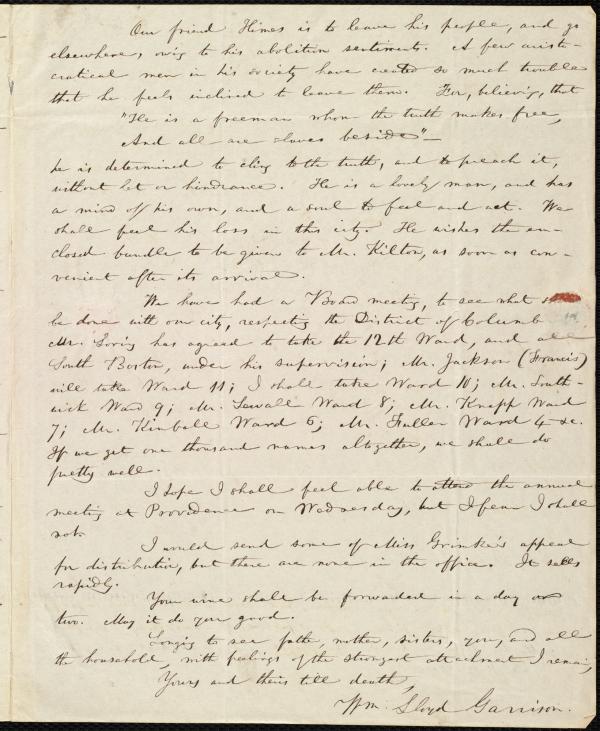 Our friend Himes is to leave his people, and go
elsewhere, owing to his abolition sentiments. A few aristo-
cratical men in his society have created so much trouble
that he feels inclined to leave them. For, believing, that
"He is a freeman whom the truth makes free,
And all are slaves beside"—
he is determined to cling to the truth, and to preach it,
without let or hindrance. He is a lovely man, and has
a mind of his own, and a soul to feel and act. We
shall feel his loss in this city. He wishes the en-
closed bundle to be given to Mr. Kilton, as soon as con-
venient after its arrival.
We have had a Board meeting, to see what
be done with our city, respecting the District of Columb
Mr. Loring has agreed to take the 12th Ward, and all
South Boston, under his supervision; Mr. Jackson (Francis)
will take Ward 11; I shall take Ward 10; Mr. South-
wick Ward 9; Mr. Sewall Ward 8; Mr. Knapp Ward
7; Mr. Kimball Ward 6; Mr. Fuller Ward 4 &c.
If we get one thousand names altogether, we shall do
pretty well.
I hope I shall feel able to attend the annual
meeting at Providence on Wednesday, but I fear I shall
not.
I would send some of Miss Grimke's appeal
for distribution, but there are none in the office. It sells
rapidly.
Your wine shall be forwarded in a day or
two. May it do you good.
Longing to see father, mother, sisters, you, and all
the household, with feelings of the strongest attachment I remain,
Yours and theirs till death,
Wm. Lloyd Garrison.